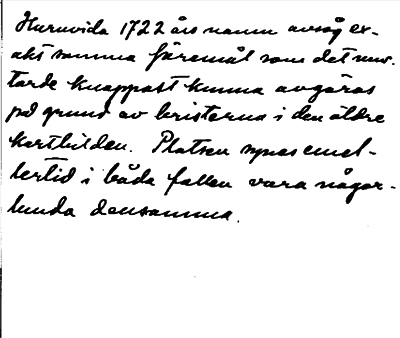 Huruvida 1722 års namn avsåg ex-
akt samma föremål som det nuv.
torde knappast kunna avgöras
på grund av bristerna i den äldre
kartbilden. Platsen synes emel-
lertid i båda fallen vara någor-
lunda densamma.